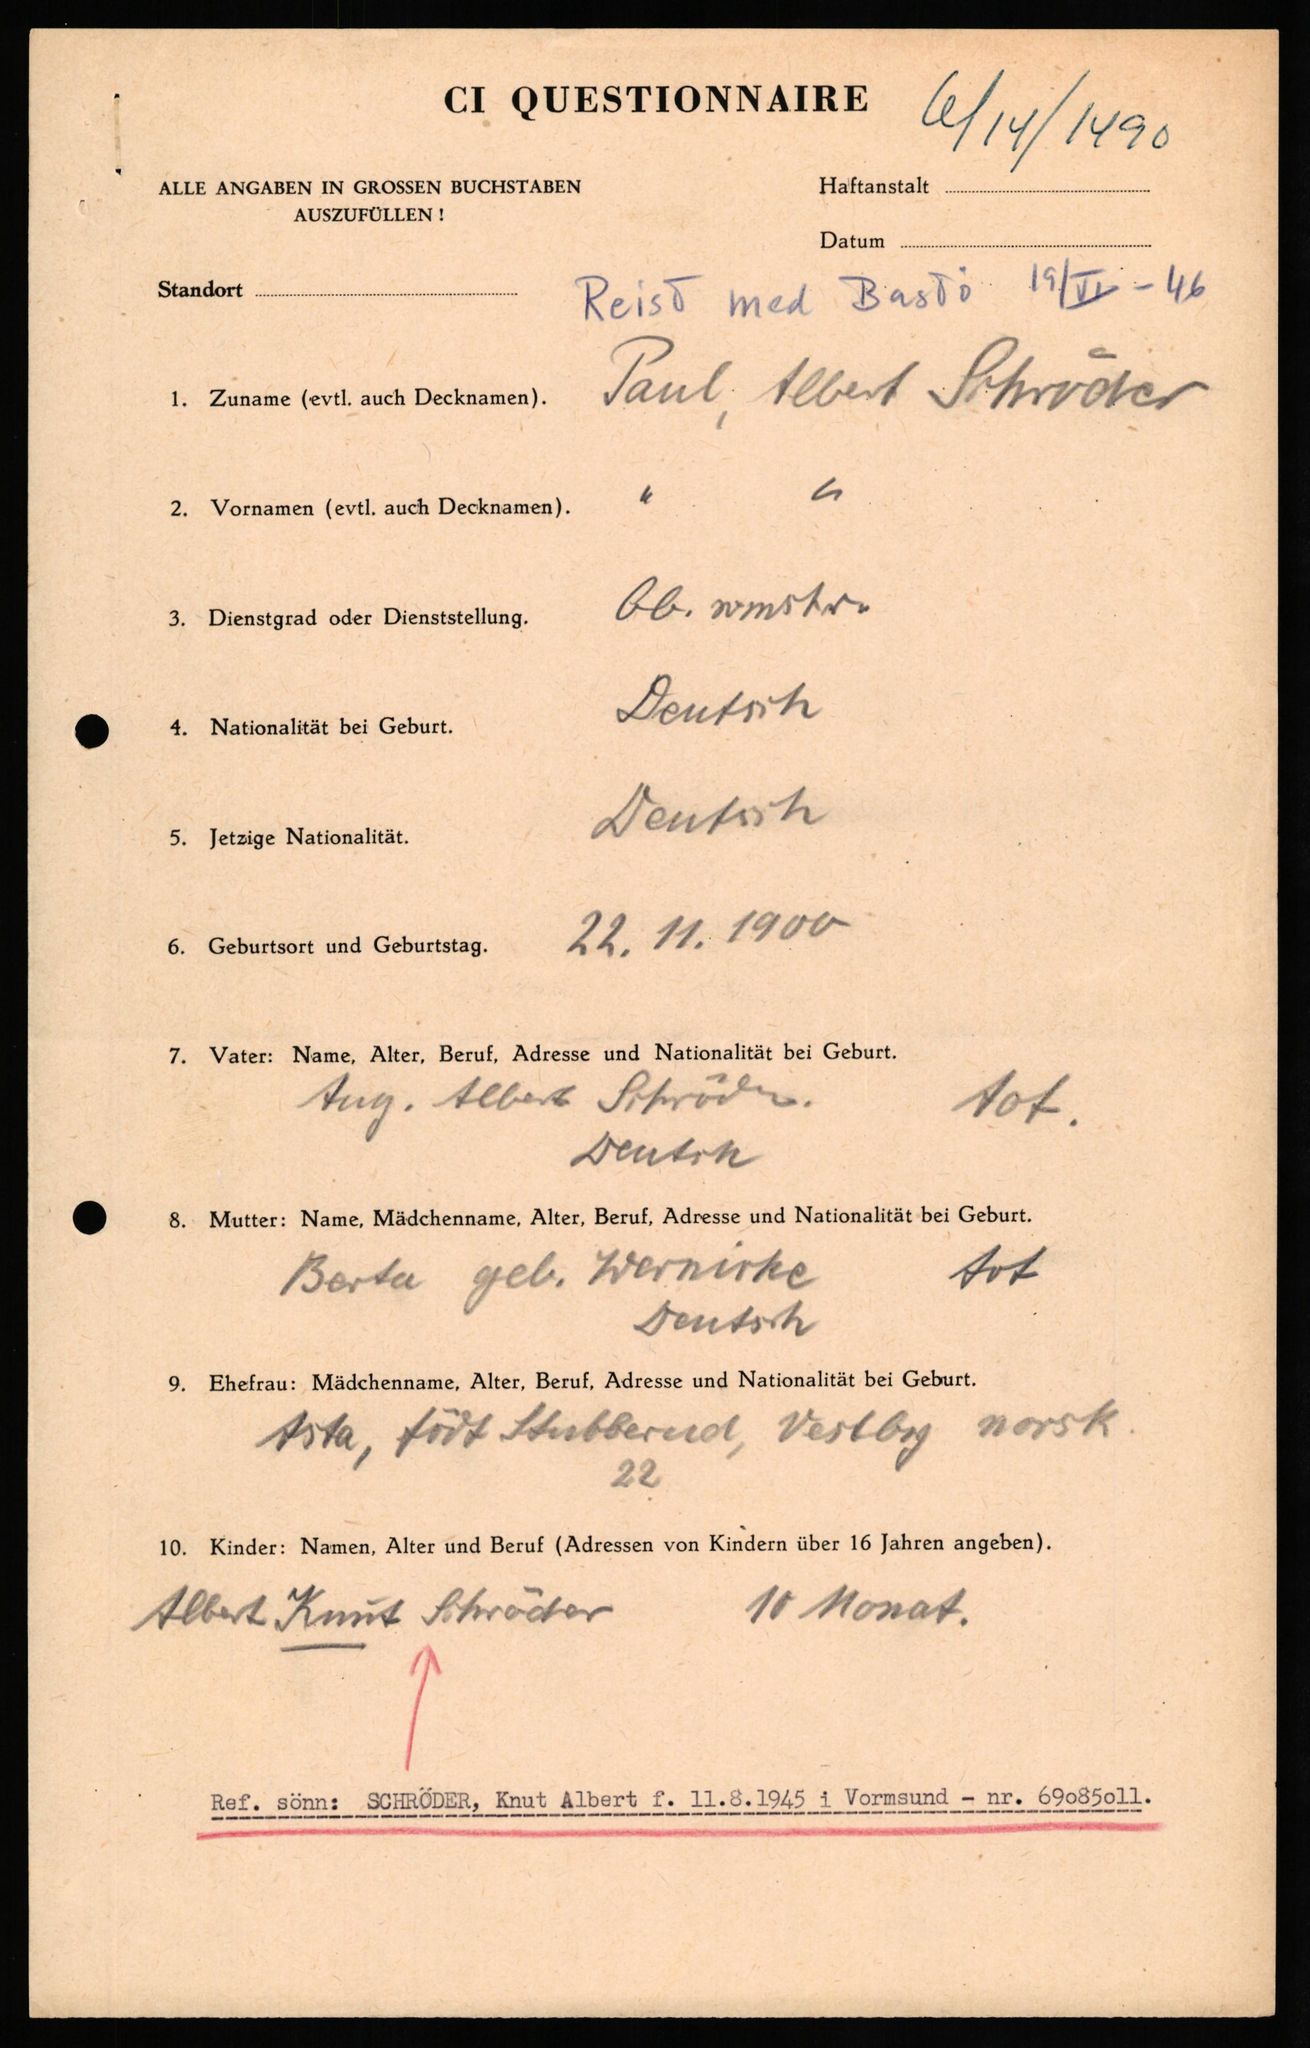 CI QUESTIONNAIRE
/14/1490
ALLE ANGABEN IN GROSSEN BUCHSTABEN
AUSZUFÜLLEN!
Haftanstalt
Datum
Standort
Reist med Bastö 19/VI-46
1. Zuname (evtl. auch Decknamen). Paul, Albert Schröder
2. Vornamen (evtl. auch Decknamen). " "
3. Dienstgrad oder Dienststellung. Ob. wmstr.
4. Nationalität bei Geburt. Deutsch
5. Jetzige Nationalität. Deutsch
6. Geburtsort und Geburtstag. 22. 11. 1900
7. Vater: Name, Alter, Beruf, Adresse und Nationalität bei Geburt.
Aug. Albert Schröder. tot.
Deutsch
8. Mutter: Name, Mädchenname, Alter, Beruf, Adresse und Nationalität bei Geburt.
Berta geb. Wernicke tot
Deutsch
9. Ehefrau: Mädchenname, Alter, Beruf, Adresse und Nationalität bei Geburt.
Asta, födt Stubberud, Vestby norsk.
22
10. Kinder: Namen, Alter und Beruf (Adressen von Kindern über 16 Jahren angeben).
Albert Knut Schröder 10 Monat.
Ref. sönn: SCHRÖDER, Knut Albert f. 11.8.1945 i Vormsund - nr. 69085011.